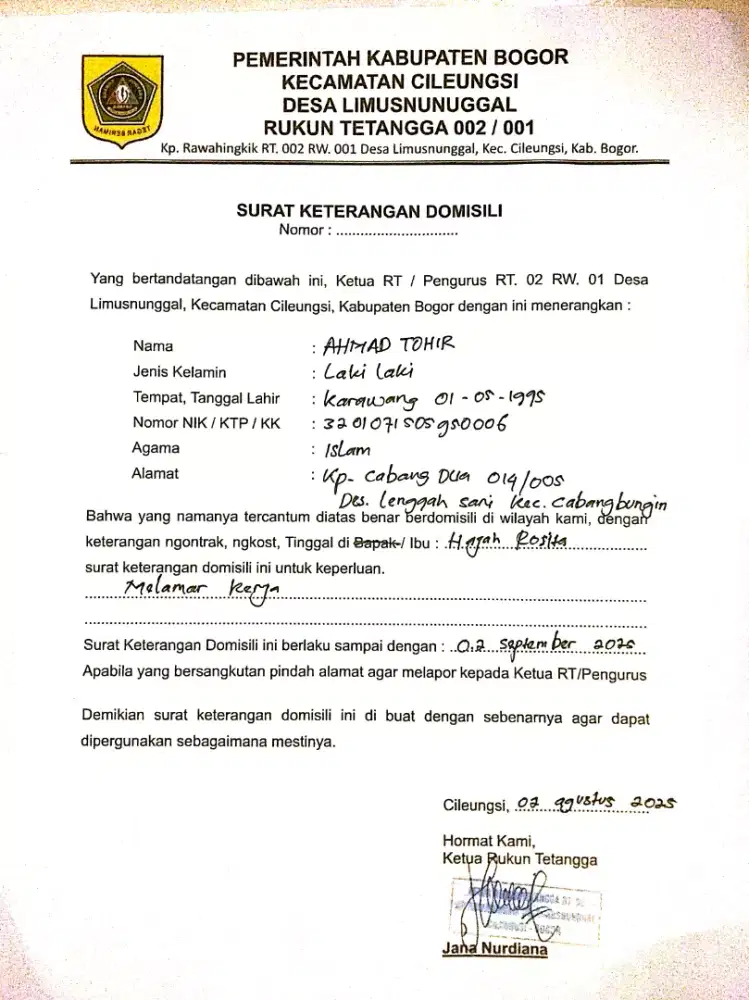 PEMERINTAH KABUPATEN BOGOR
KECAMATAN CILEUNGSI
DESA LIMUSNUNUGGAL
RUKUN TETANGGA 002 / 001
Kp. Rawahingkik RT. 002 RW. 001 Desa Limusnunggal, Kec. Cileungsi, Kab. Bogor.
TEGAR BERIMAN
SURAT KETERANGAN DOMISILI
Nomor : ...............................
Yang bertandatangan dibawah ini, Ketua RT / Pengurus RT. 02 RW. 01 Desa
Limusnunggal, Kecamatan Cileungsi, Kabupaten Bogor dengan ini menerangkan :
Nama : AHMAD TOHIR
Jenis Kelamin : Laki Laki
Tempat, Tanggal Lahir : Karawang 01 - 05 - 1995
Nomor NIK / KTP / KK : 3201071505950006
Agama : Islam
Alamat : Kp. Cabang Dua 014/005
Des. Lenggah sari Kec. Cabangbungin
Bahwa yang namanya tercantum diatas benar berdomisili di wilayah kami, dengan
keterangan ngontrak, ngkost, Tinggal di Bapak / Ibu : Hajah Rosita
surat keterangan domisili ini untuk keperluan.
Melamar Kerja
Surat Keterangan Domisili ini berlaku sampai dengan : 02 September 2025
Apabila yang bersangkutan pindah alamat agar melapor kepada Ketua RT/Pengurus
Demikian surat keterangan domisili ini di buat dengan sebenarnya agar dapat
dipergunakan sebagaimana mestinya.
Cileungsi, 02 agustus 2025
Hormat Kami,
Ketua Rukun Tetangga
Jana Nurdiana